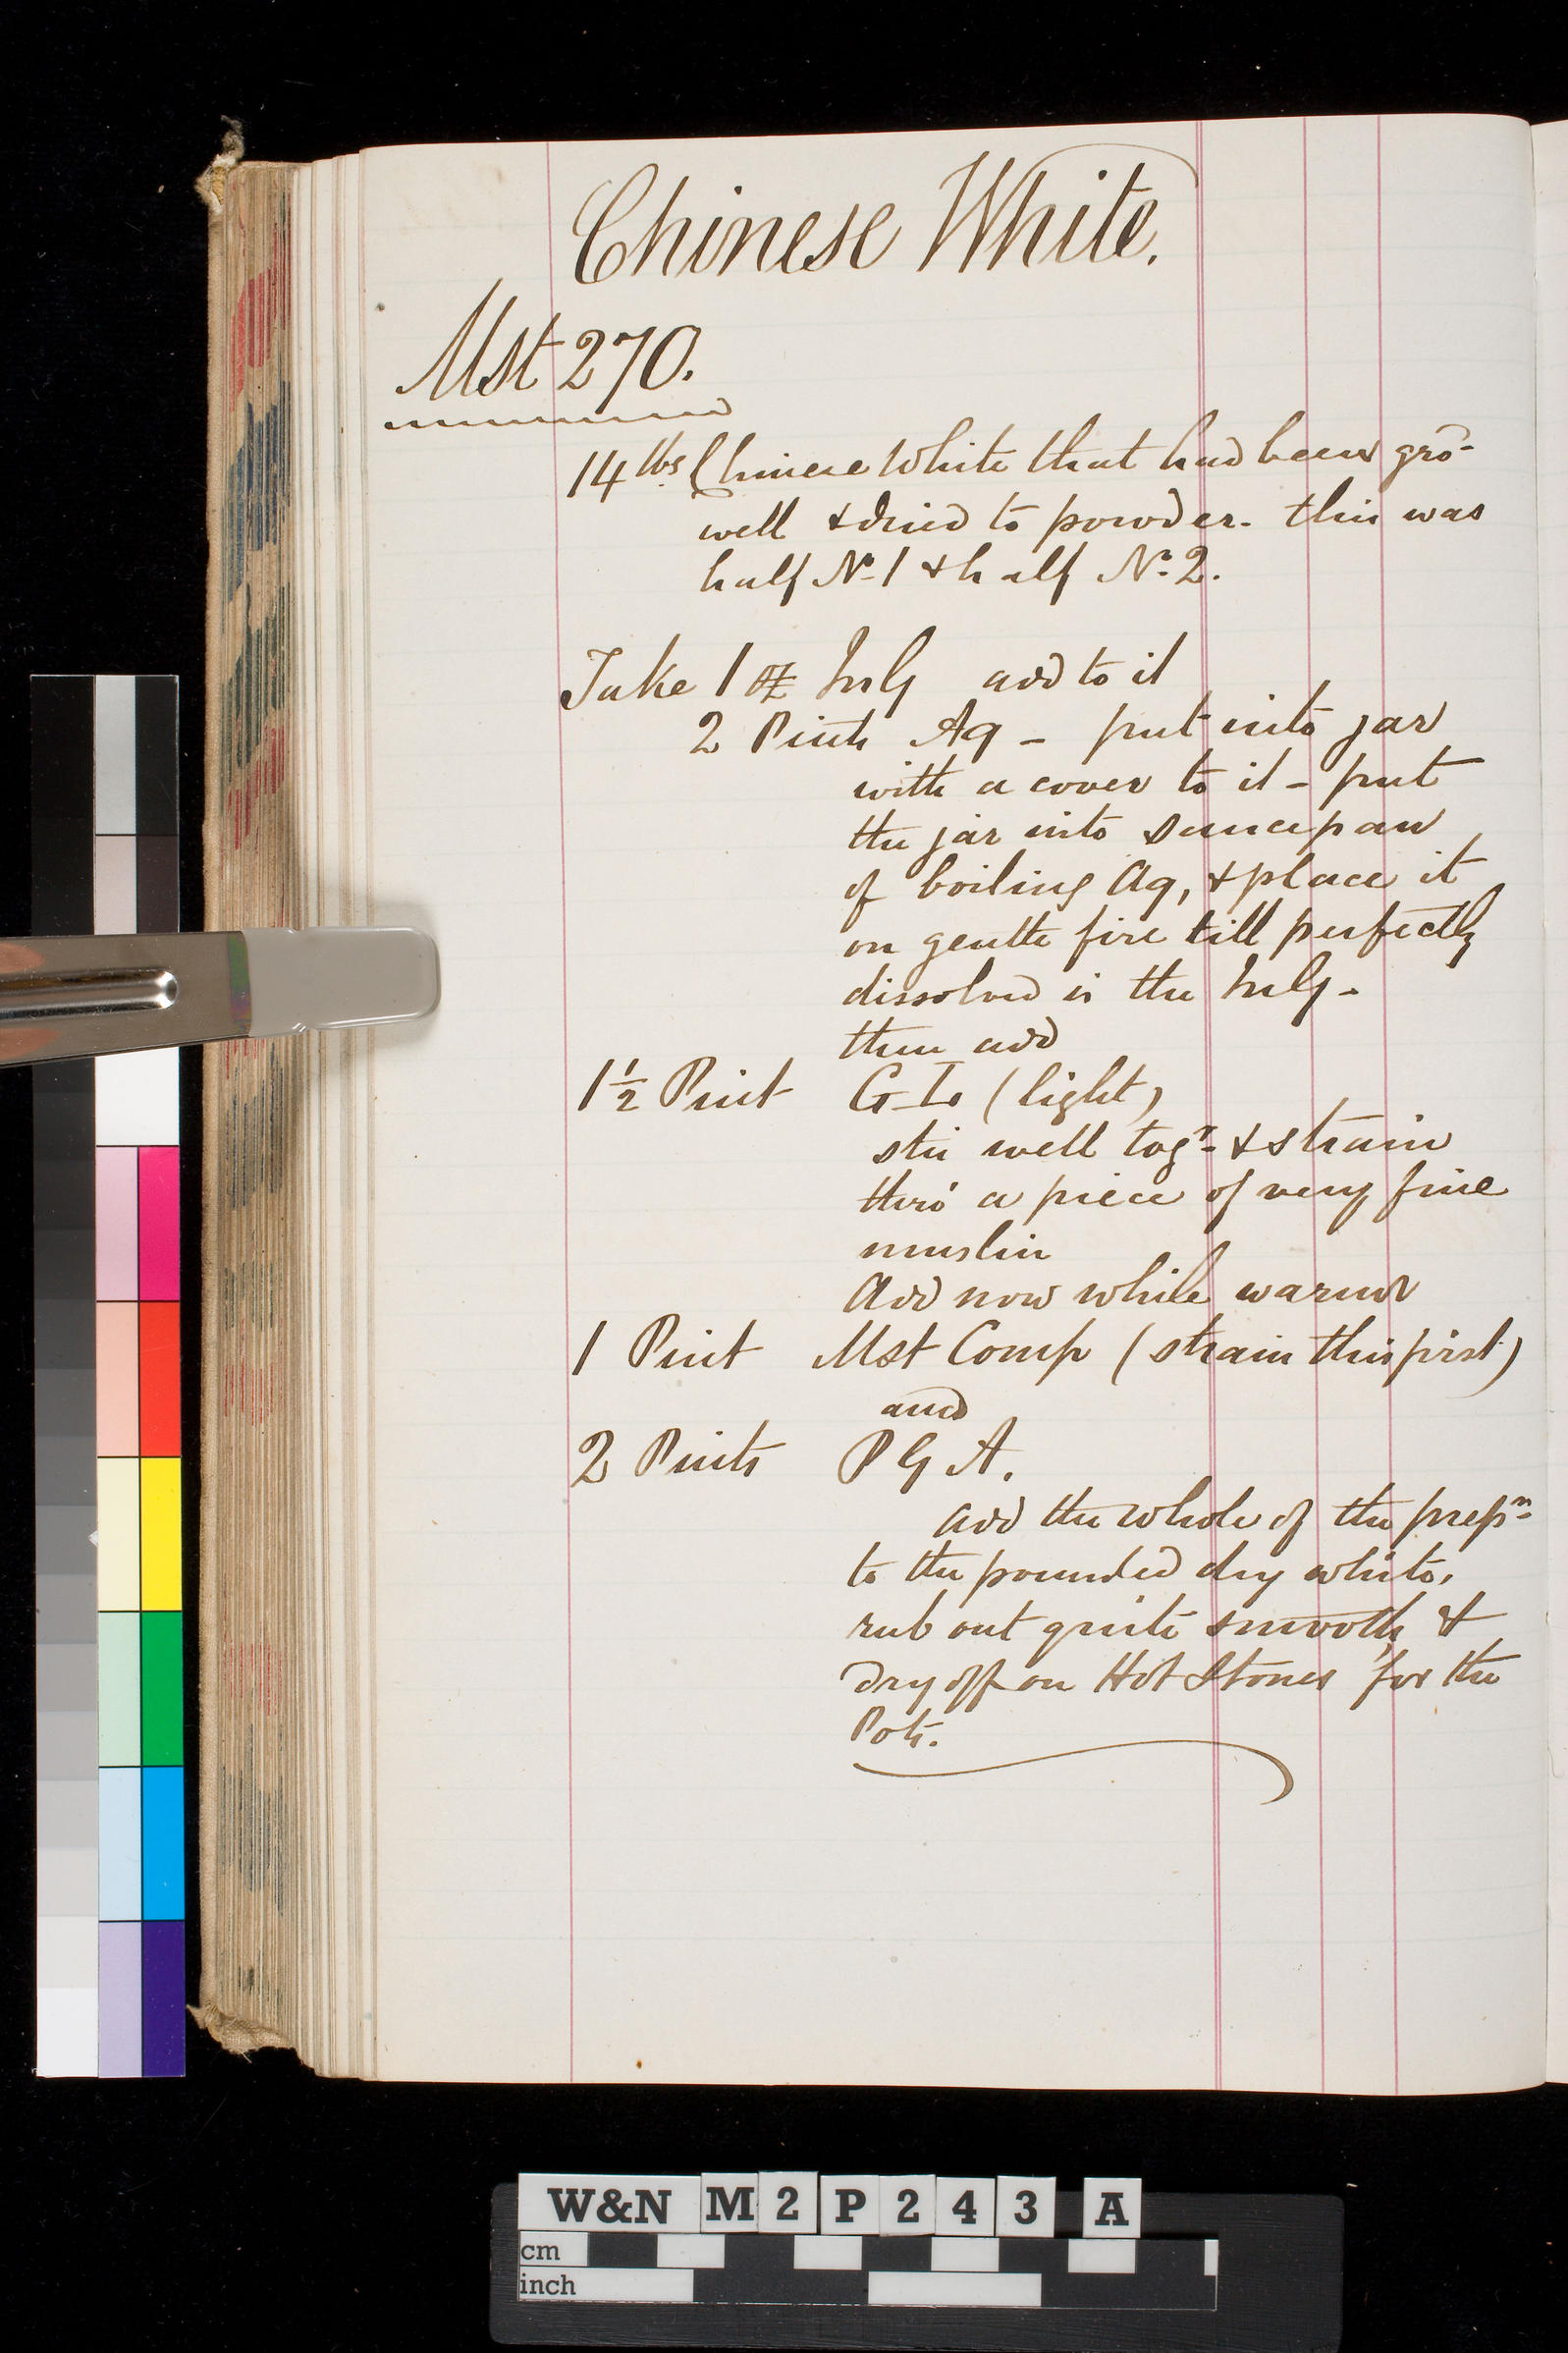 Chinese White.
Mst 270.
14 lbs Chinese White that had been gro-
well & dried to powder - this was
half No 1 & half No 2.
Take 1 oz add to it
2 Pints Aq - put into jar
with a cover to it - put
the jar into saucepan
of boiling Aq, & place it
on gentle fire till perfectly
dissolved is the
then add
1 1/2 Pint G Lo (light)
stir well togr & strain
thro' a piece of very fine
muslin
Add now while warm
1 Pint Mst Comp (strain this first)
and
2 Pints P G A.
Add the whole of the prepn
to the pounded dry white,
rub out quite smooth, &
dry off on Hot Stones for the
Pots.
W&N M2P243 A
cm
inch